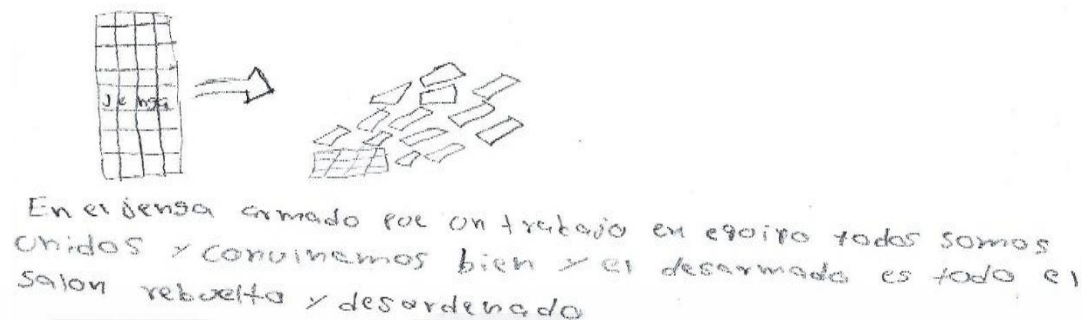 Jenga
En el jenga armado fue un trabajo en equipo todos somos
unidos y convinemos bien y el desarmado es todo el
salon rebuelto y desordenado